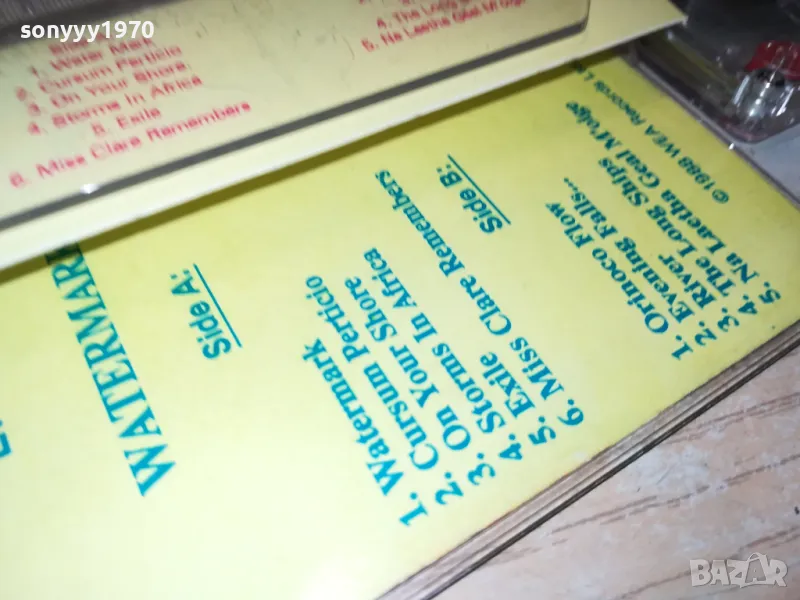 sonyyy1970
1. Water Mark
2. Cursum Perticio
3. On Your Shore.
4. Storms In Africa
5. Exile
6. Miss Clare Remembers
4. The Long
5. Na Laetha Geal M'Olge
WATERMARK
Side A:
1. Watermark
2. Cursum Perticio
3. On Your Shore
4. Storms In Africa
5. Exile
6. Miss Clare Remembers
Side B:
1. Orinoco Flow
2. Evening Falls...
3. River
4. The Long Ships
5. Na Laetha Geal M'olge
©1988 WEA Records
BAZAR